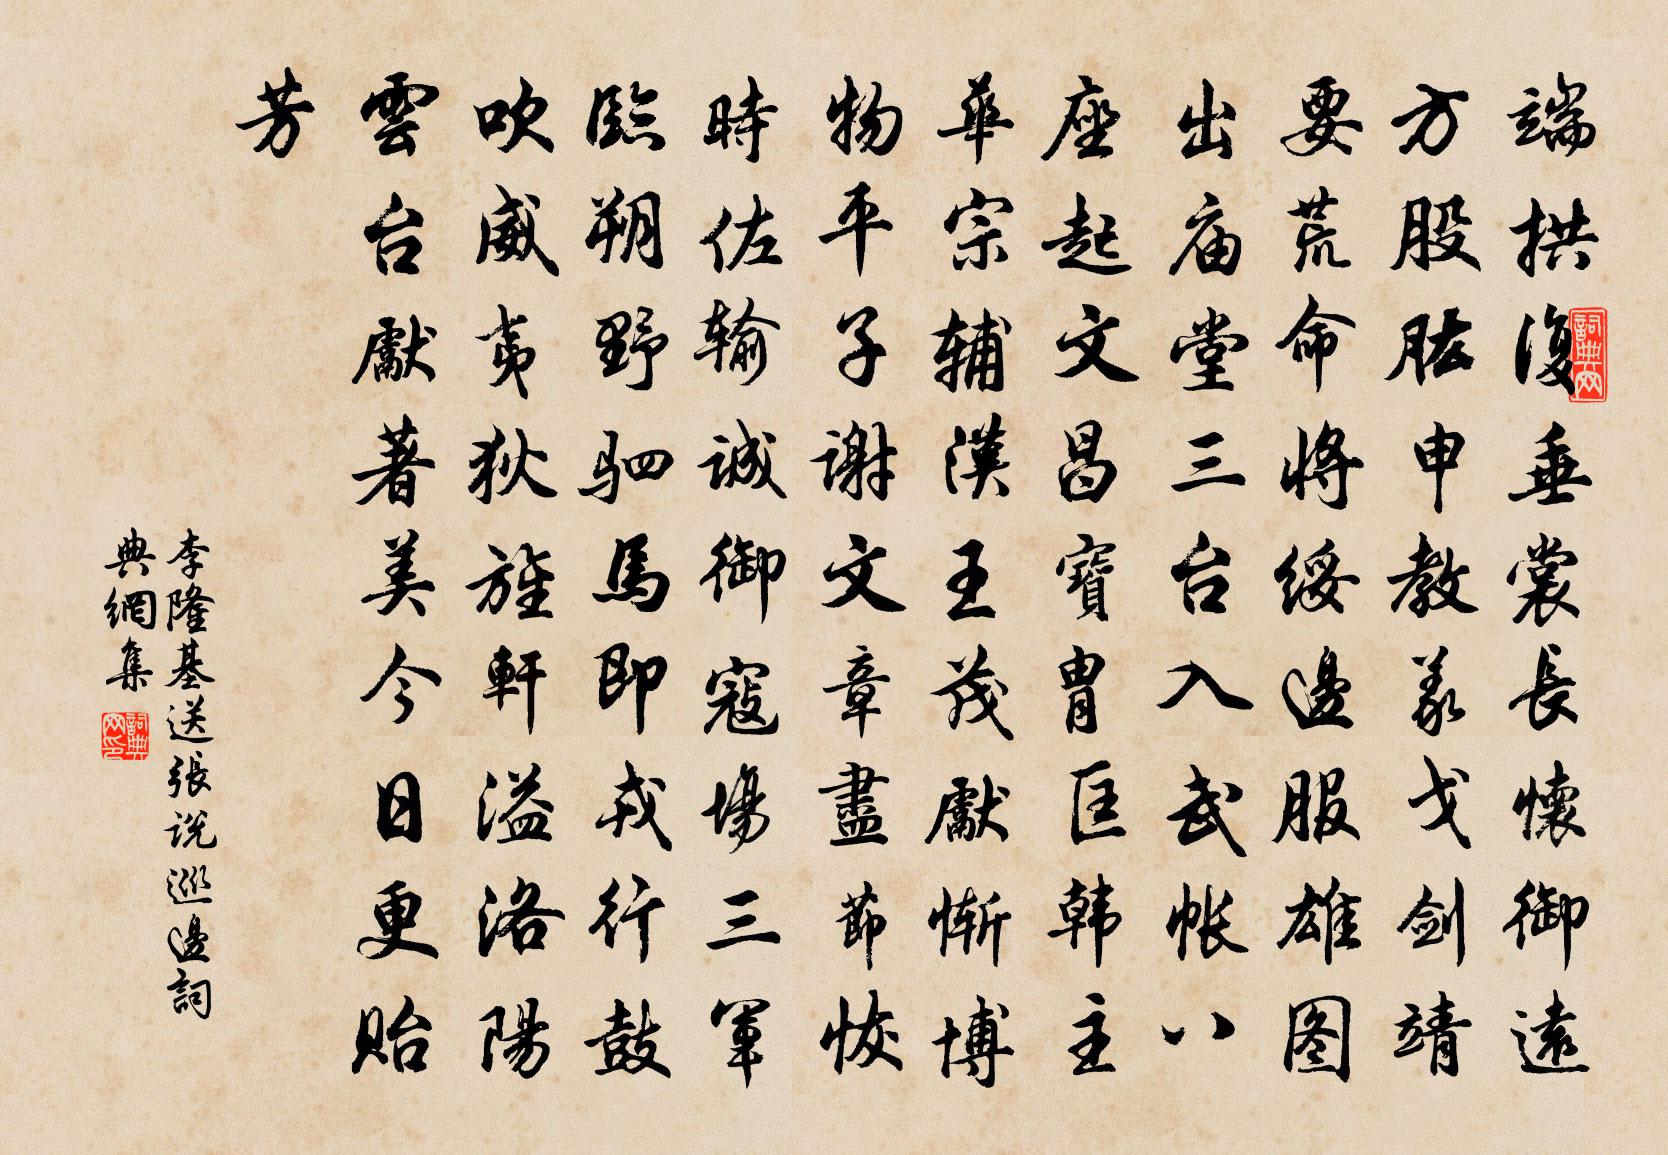 端拱復垂裳長懷御遠
方股肱申教義戈劍靖
要荒命將綏邊服雄图
出庙堂三台入武帐八
座起文昌寶胄匡韩主
華宗辅漢王茂獻惭博
物平子谢文章盡節恢
時佐输诚御寇場三軍
臨朔野驷馬即戎行鼓
吹威夷狄旌軒溢洛陽
雲台獻著美今日更貽
芳
李隆基送張说巡邊詞
典網集
詞典网
詞典网印